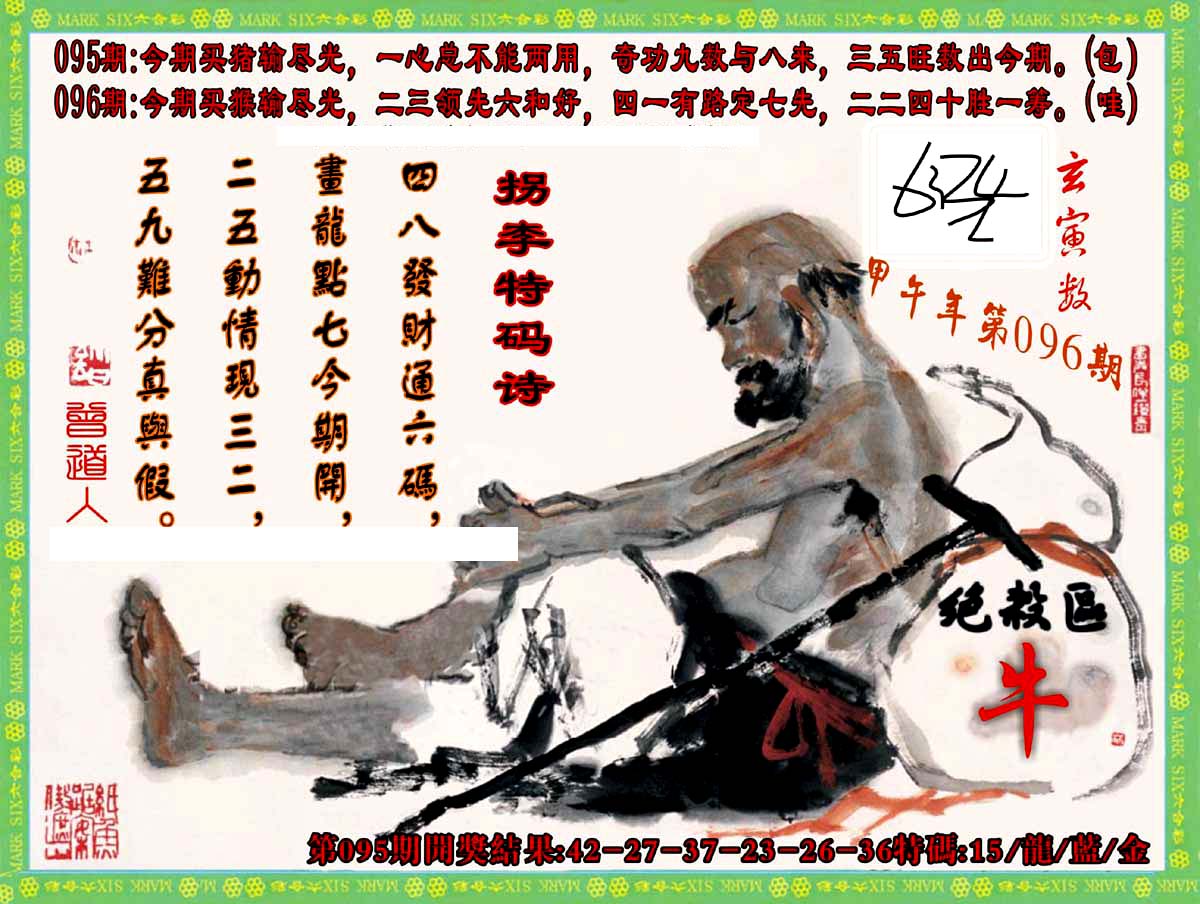 MARK SIX六合彩
095期:今期买猪输尽光，一心总不能两用，奇功九数与八来，三五旺数出今期。(包)
096期:今期买猴输尽光，二三领先六和好，四一有路定七先，二二四十胜一筹。(哇)
玄寅数
甲午年第096期
拐李特码诗
四八發財通六碼，
畫龍點七今期開，
二五動情現三二，
五九難分真與假。
曾道人
绝殺區
牛
第095期開獎結果:42-27-37-23-26-36特碼:15/龍/藍/金